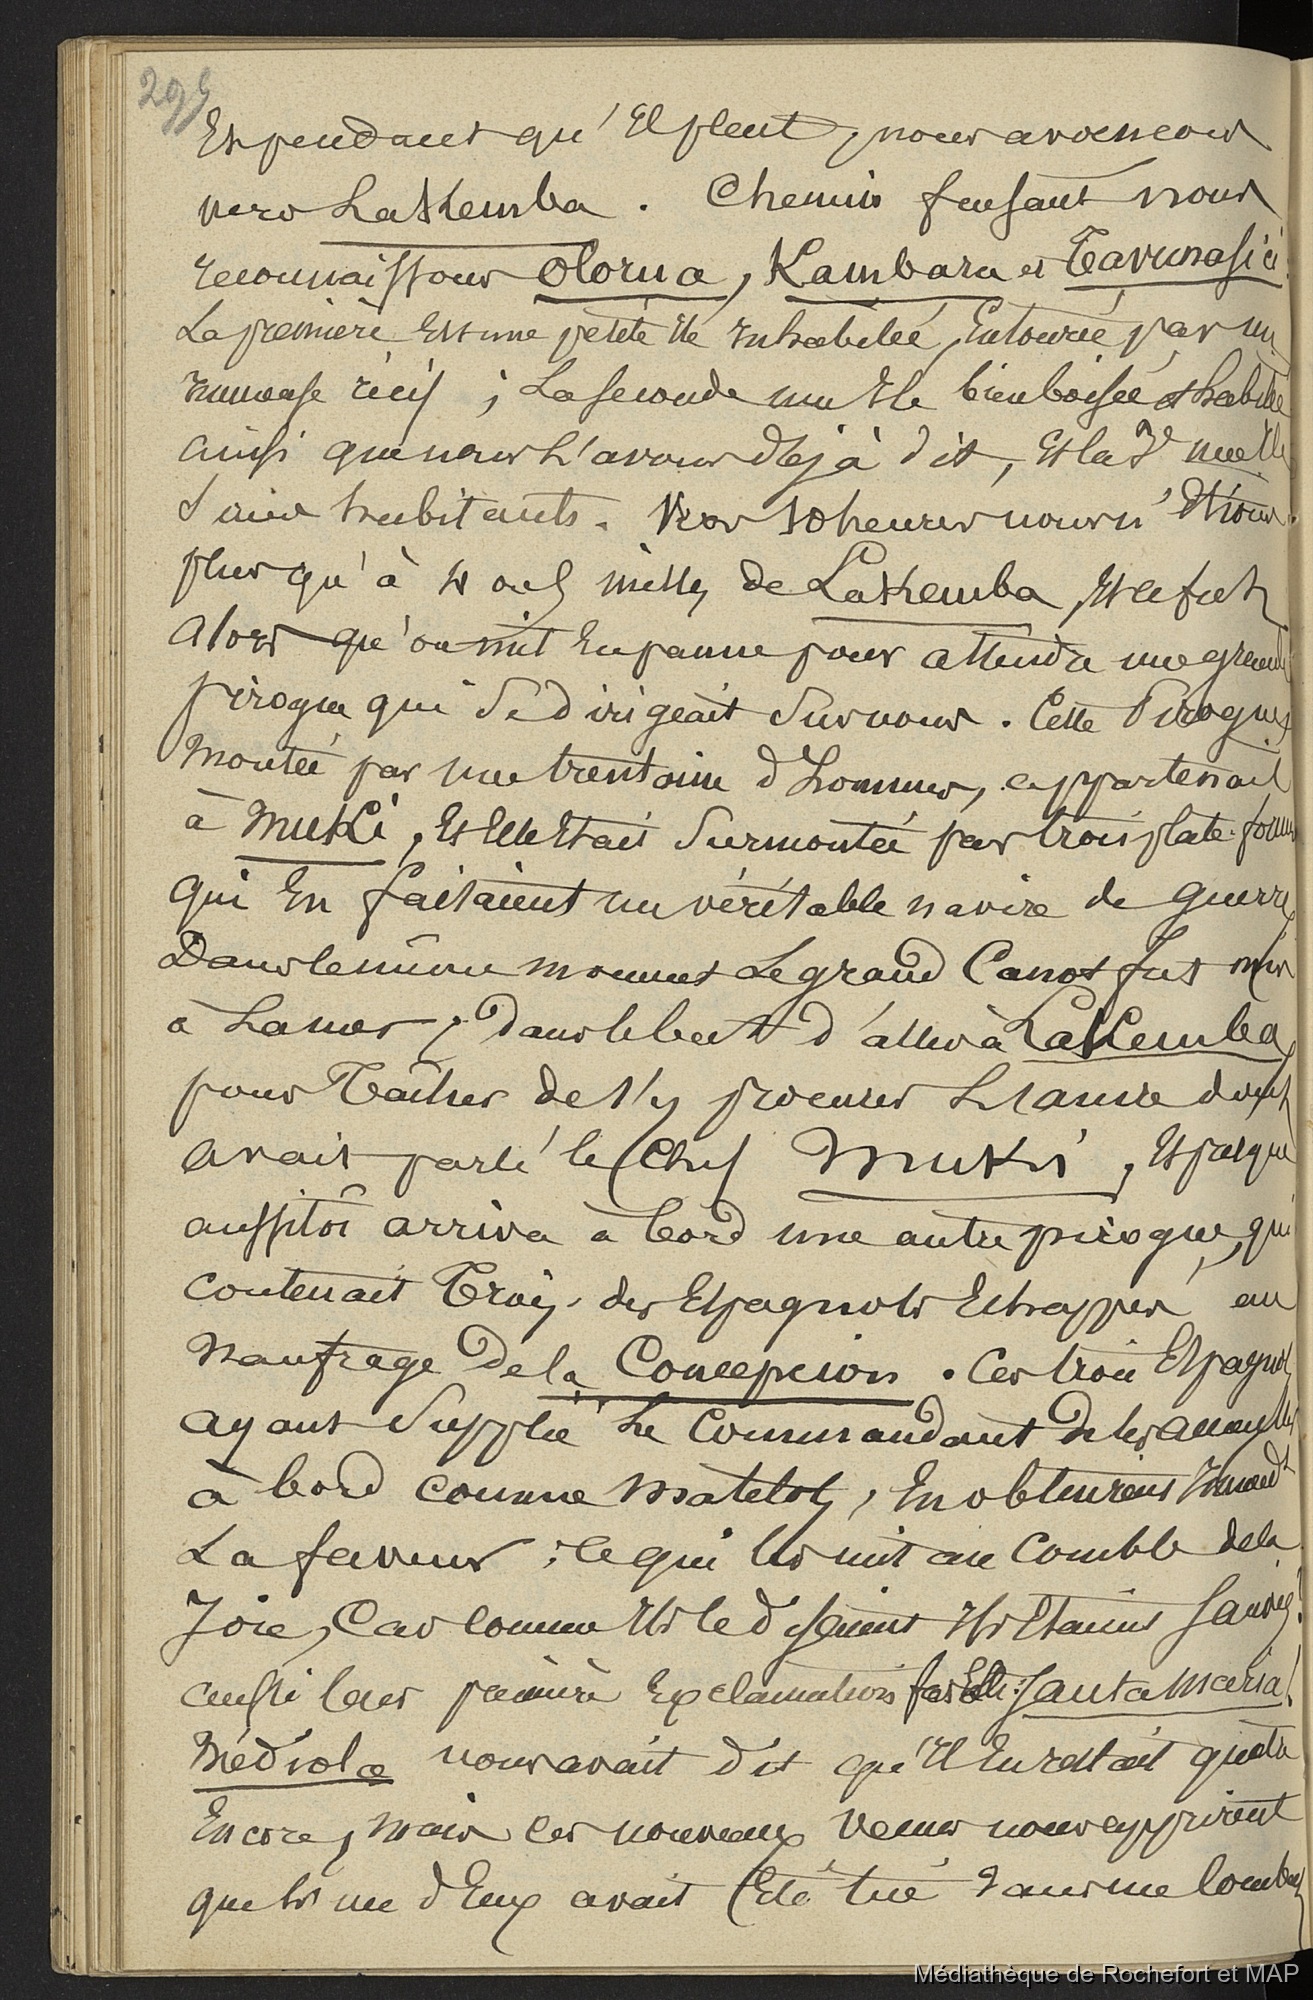 299
Et pendant qu'il pleut, nous avancons
vers Lakemba. Chemin faisant nous
reconnaissons Olorua, Kambara et Tavunasici.
La première est une petite ile inhabitée, entourée par un
immense récif ; la seconde une ile bien boisée et habitée
ainsi que nous l'avons déjà dit, et la 3e une ile
sans habitants. Vers 10 heures nous n'étions
plus qu'à 4 ou 5 milles de Lakemba, et ce fut
alors qu'on mit en panne pour attendre une grande
pirogue qui se dirigeait sur nous. Cette Pirogue
montée par une trentaine d'hommes, appartenait
à Muki, et elle était surmontée par trois plate-formes
qui en faisaient un véritable navire de guerre
Dans le même moment le grand Canot fut mis
à la mer, dans le but d'aller à Lakemba,
pour tâcher de s'y procurer l'ancre dont
avait parlé le Chef Muki, et presque
aussitôt arriva à bord une autre pirogue, qui
contenait trois des Espagnols échappés au
naufrage de la Concepcion. Ces trois Espagnols
ayant supplié le Commandant de les
à bord comme matelots, en obtinrent
La faveur ; ce qui les mit au comble de la
Joie, Car comme ils le disaient ils étaient sauvés !
aussi leur première exclamation fut Elle : Santa Maria !
Médiola nous avait dit qu'il en restait quatre
Encore, mais ces nouveaux venus nous apprirent
que l'un d'Eux avait été tué dans une
Médiathèque de Rochefort et MAP